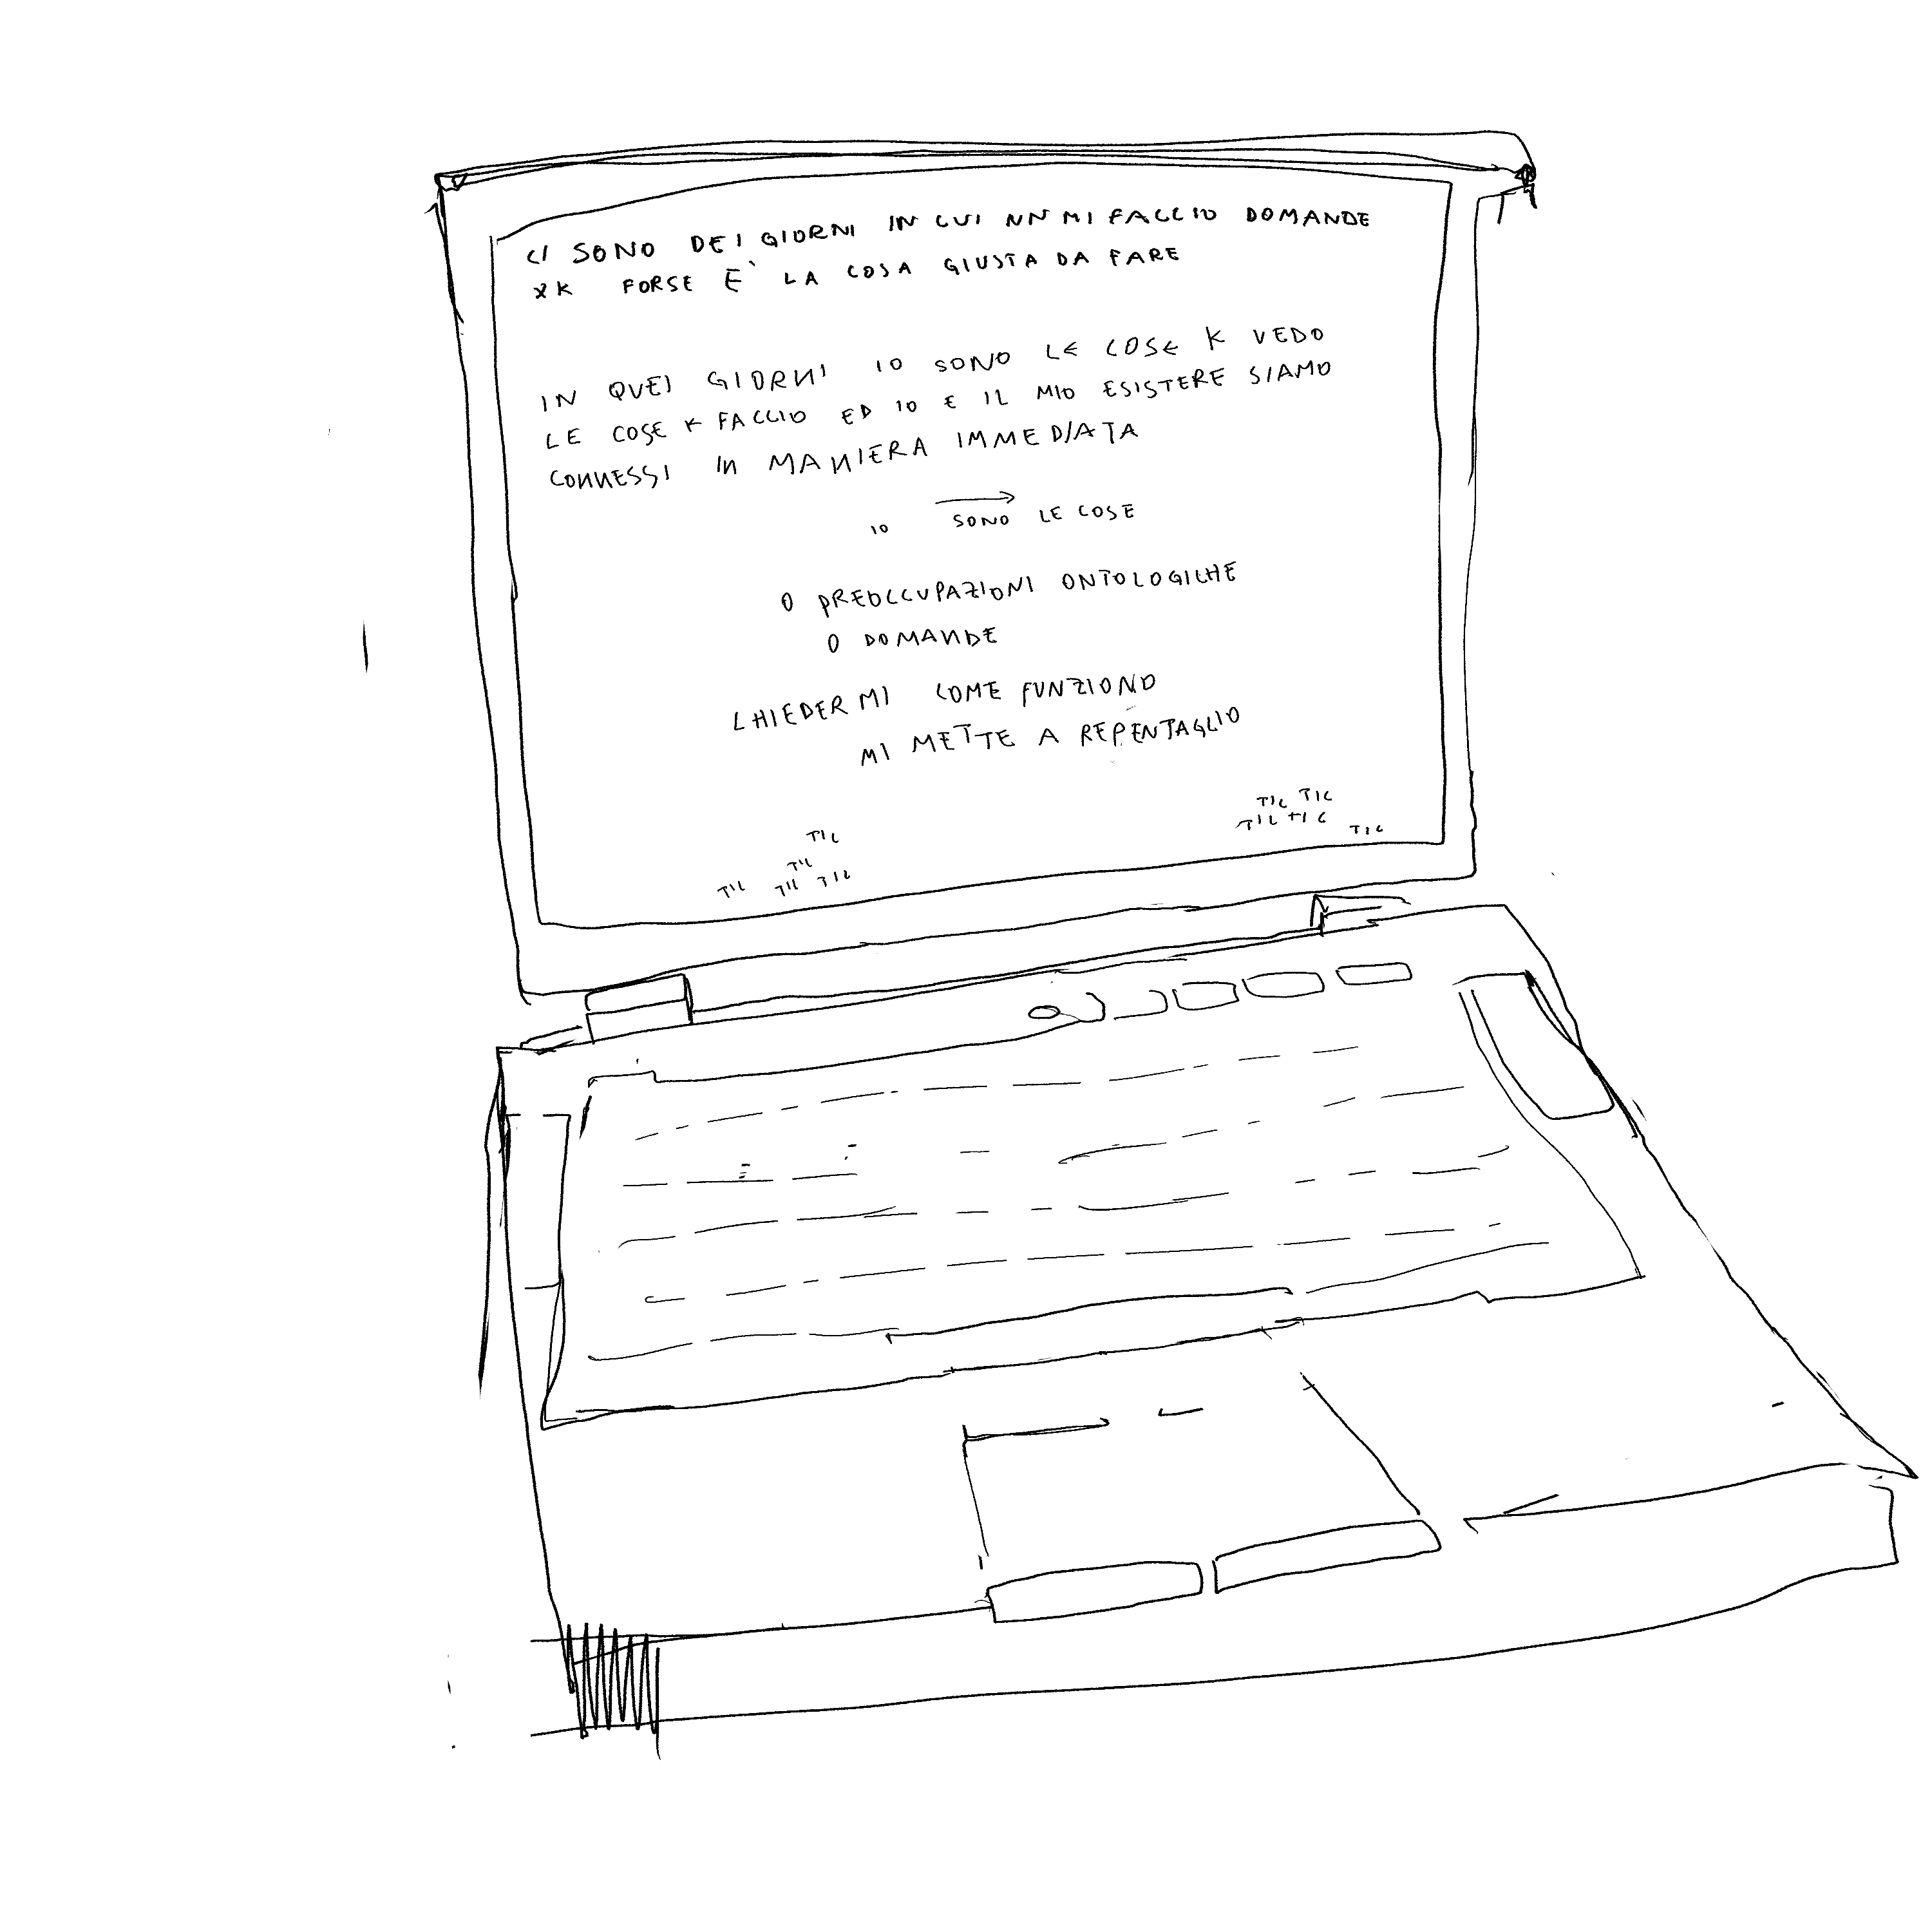 CI SONO DEI GIORNI IN CUI NN MI FACCIO DOMANDE
XK FORSE È LA COSA GIUSTA DA FARE
IN QUEI GIORNI IO SONO LE COSE K VEDO
LE COSE K FACCIO ED IO E IL MIO ESISTERE SIAMO
CONNESSI IN MANIERA IMMEDIATA
IO SONO LE COSE
0 PREOCCUPAZIONI ONTOLOGICHE
0 DOMANDE
CHIEDERMI COME FUNZIONO
MI METTE A REPENTAGLIO
TIC TIC
TIC TIC
TIC
TIC
TIC
TIC TIC TIC